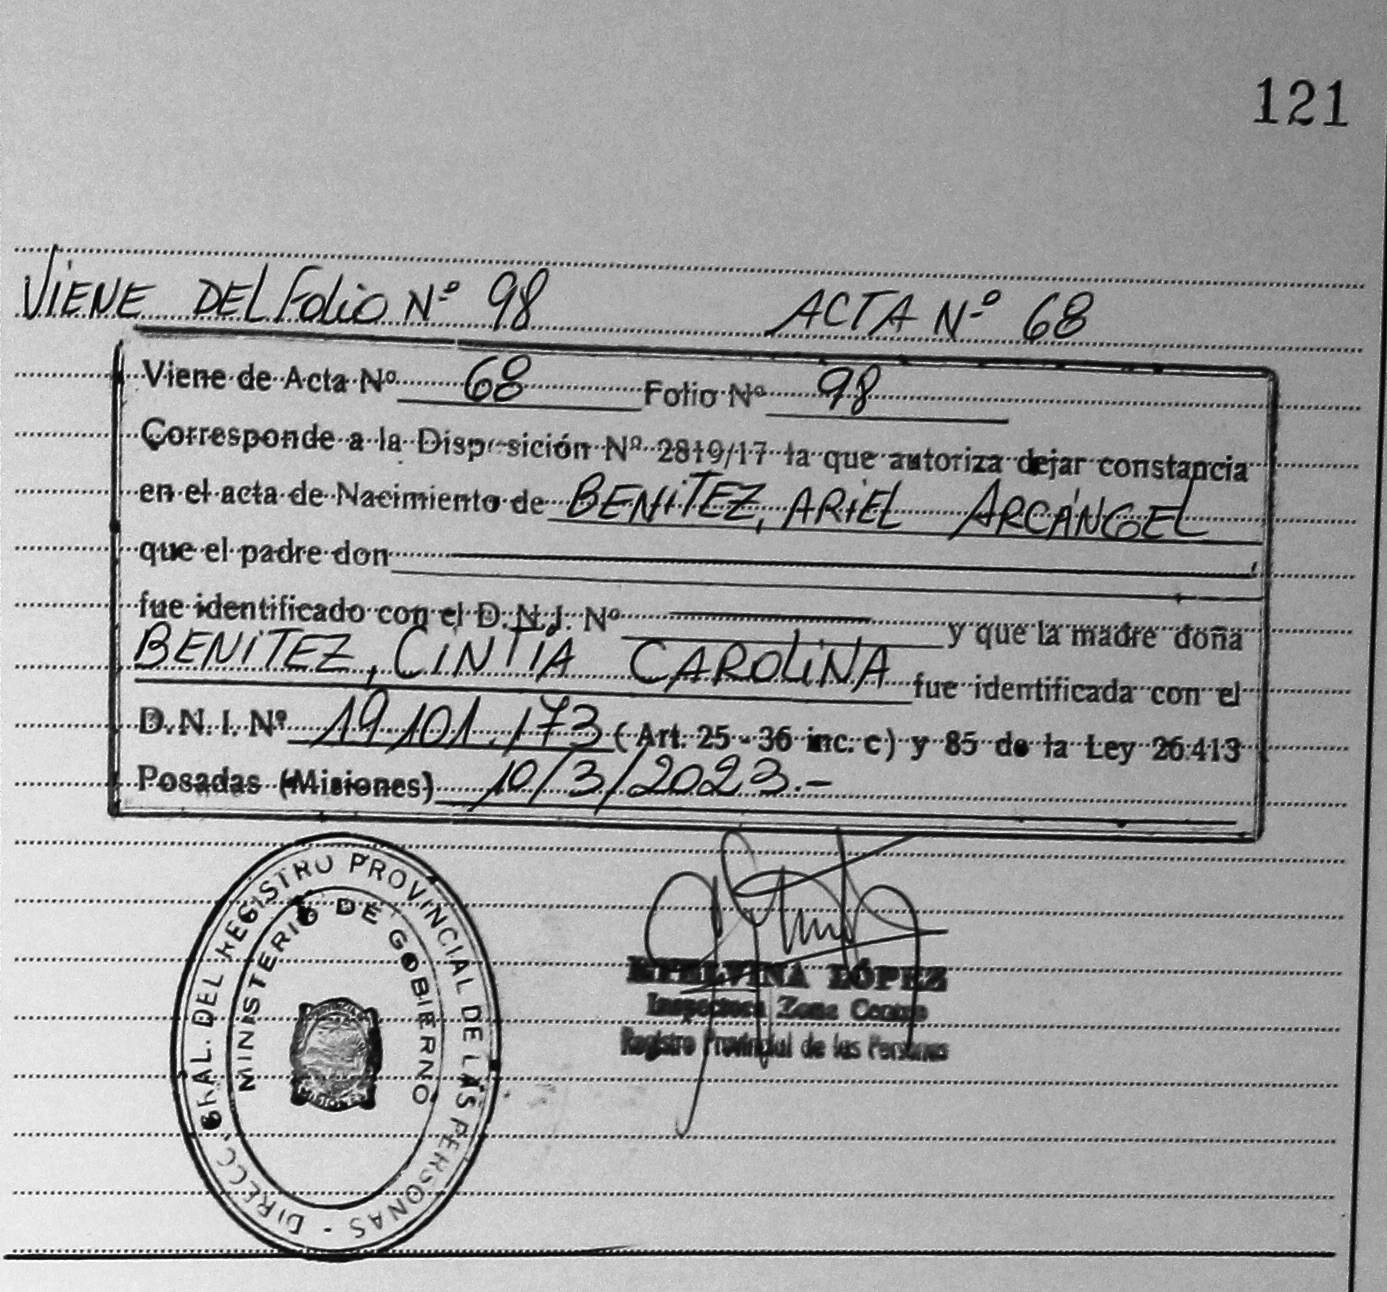 121
VIENE DEL FOLIO Nº 98 ACTA Nº 68
Viene de Acta Nº 68 Folio Nº 98
Corresponde a la Disposición Nº 2819/17 la que autoriza dejar constancia
en el acta de Nacimiento de BENITEZ, ARIEL ARCÁNGEL
que el padre don
fue identificado con el D.N.I. Nº y que la madre doña
BENITEZ, CINTIA CAROLINA fue identificada con el
D.N.I. Nº 19.101.173 (Art. 25 - 36 inc. c) y 85 de la Ley 26.413
Posadas (Misiones) 10/3/2023.-
DIRECC. GRAL. DEL REGISTRO PROVINCIAL DE LAS PERSONAS -
MINISTERIO DE GOBIERNO
MISIONES
LÓPEZ
Inspectora Zona Centro
Registro Provincial de las Personas